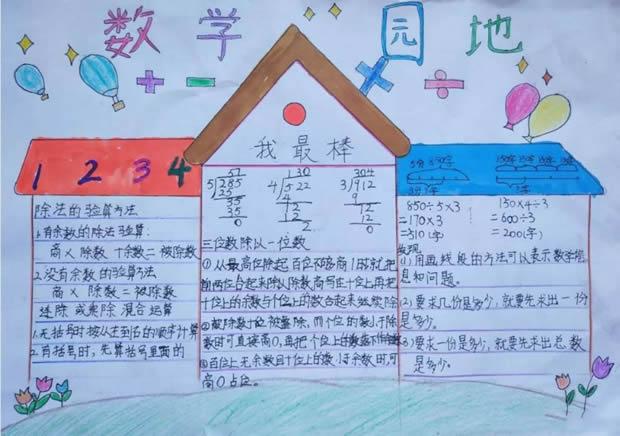 数学园地
1 2 3 4
除法的验算方法
1.有余数的除法验算:
商×除数+余数=被除数
2.没有余数的验算方法
商×除数=被除数
连除或乘除混合运算
1.无括号时按从左到右的顺序计算
2.有括号时,先算括号里面的
我最棒
57
5 285
25
35
35
0
130
4 522
4
12
12
2
304
3 912
9
12
12
0
三位数除以一位数
①从最高位除起百位不够商1时就把
前两位合起来除以除数商写在十位上再把
十位上的余数与个位上的数合起来继续除
②被除数十位被整除,而个位的数小于除
数时可直接商0,再把个位上的数落下作余数
③百位上无余数且十位上的数小于余数时,可
商0占位。
850÷5×3
=170×3
=310(字)
150×4÷3
=600÷3
=200(字)
发现
(1)用画线段的方法可以表示数学信
息和问题。
(2)要求几份是多少,就要先求出一份
是多少。
(3)要求一份是多少,就要先求出总数
是多少。